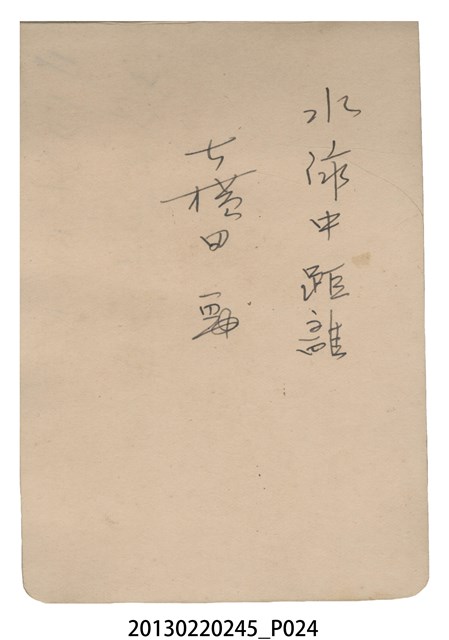 水作中距離
七横田
20130220245_P024